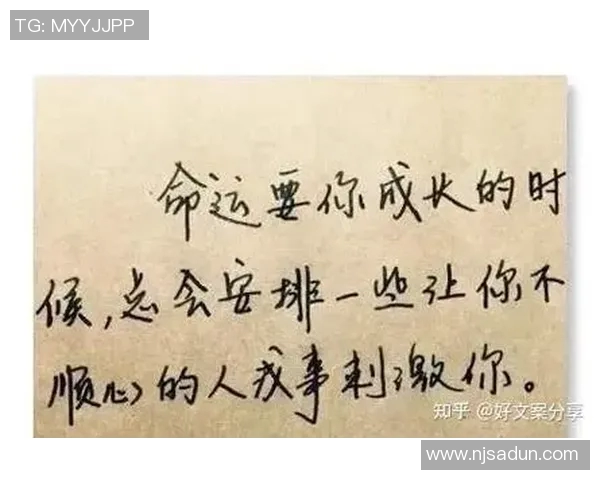 TG: MYYJJPP
命运要你成长的时
候,总会安排一些让你不
顺心的人或事刺激你。
知乎 @好文案分享
www.njsadun.com